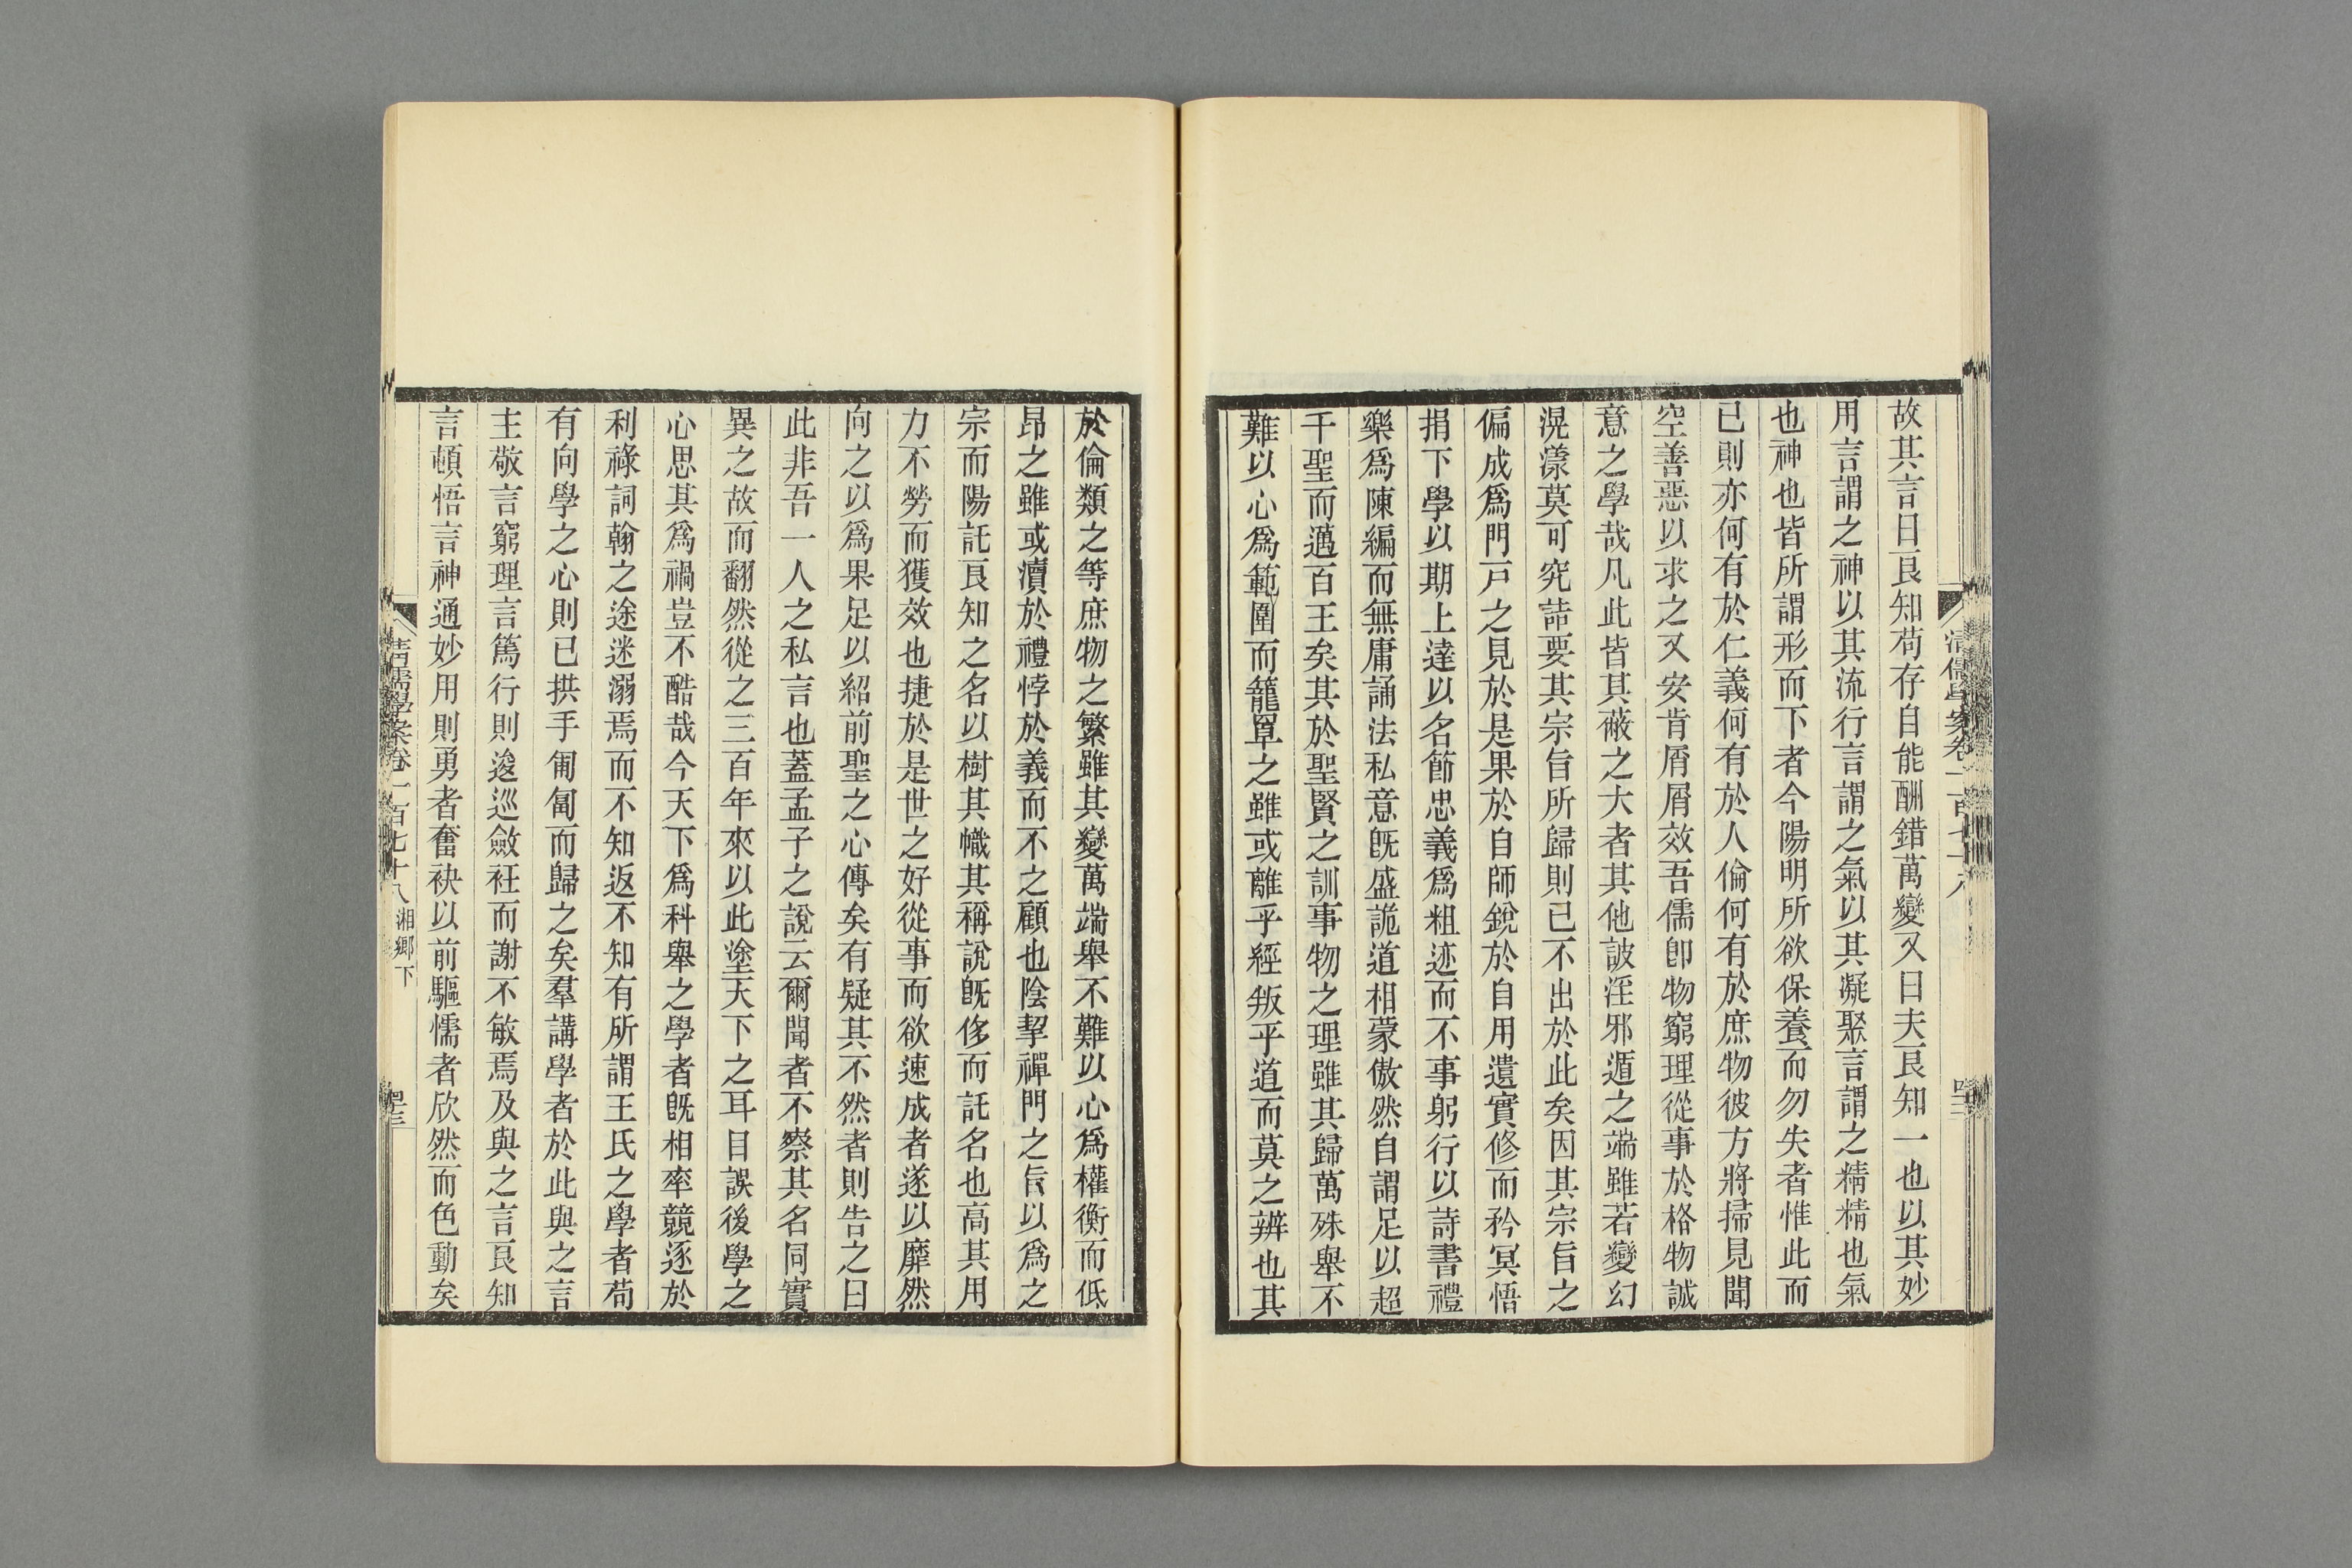 故其言曰良知苟存自能酬錯萬變又曰夫良知一也以其妙
用言謂之神以其流行言謂之氣以其凝聚言謂之精精也氣
也神也皆所謂形而下者今陽明所欲保養而勿失者惟此而
已則亦何有於仁義何有於人倫何有於庶物彼方將掃見聞
空善惡以求之又安肯屑屑效吾儒卽物窮理從事於格物誠
意之學哉凡此皆其蔽之大者其他詖淫邪遁之端雖若變幻
滉漾莫可究詰要其宗旨所歸則已不出於此矣因其宗旨之
偏成爲門戸之見於是果於自師銳於自用遺實修而矜冥悟
捐下學以期上達以名節忠義爲粗迹而不事躬行以詩書禮
樂爲陳編而無庸誦法私意旣盛詭道相蒙傲然自謂足以超
千聖而邁百王矣其於聖賢之訓事物之理雖其歸萬殊舉不
難以心爲範圍而籠罩之雖或離乎經叛乎道而莫之辨也其
於倫類之等庶物之繁雖其變萬端舉不難以心爲權衡而低
昂之雖或瀆於禮悖於義而不之顧也陰挈禪門之旨以爲之
宗而陽託良知之名以樹其幟其稱說旣侈而託名也高其用
力不勞而獲效也捷於是世之好從事而欲速成者遂以靡然
向之以爲果足以紹前聖之心傳矣有疑其不然者則告之曰
此非吾一人之私言也蓋孟子之說云爾聞者不察其名同實
異之故而翻然從之三百年來以此塗天下之耳目誤後學之
心思其爲禍豈不酷哉今天下爲科舉之學者旣相率競逐於
利祿詞翰之途迷溺焉而不知返不知有所謂王氏之學者苟
有向學之心則已拱手匍匐而歸之矣羣講學者於此與之言
主敬言窮理言篤行則逡巡斂衽而謝不敏焉及與之言良知
言頓悟言神通妙用則勇者奮袂以前驅懦者欣然而色動矣
清儒學案卷一百七十八 湘鄉下